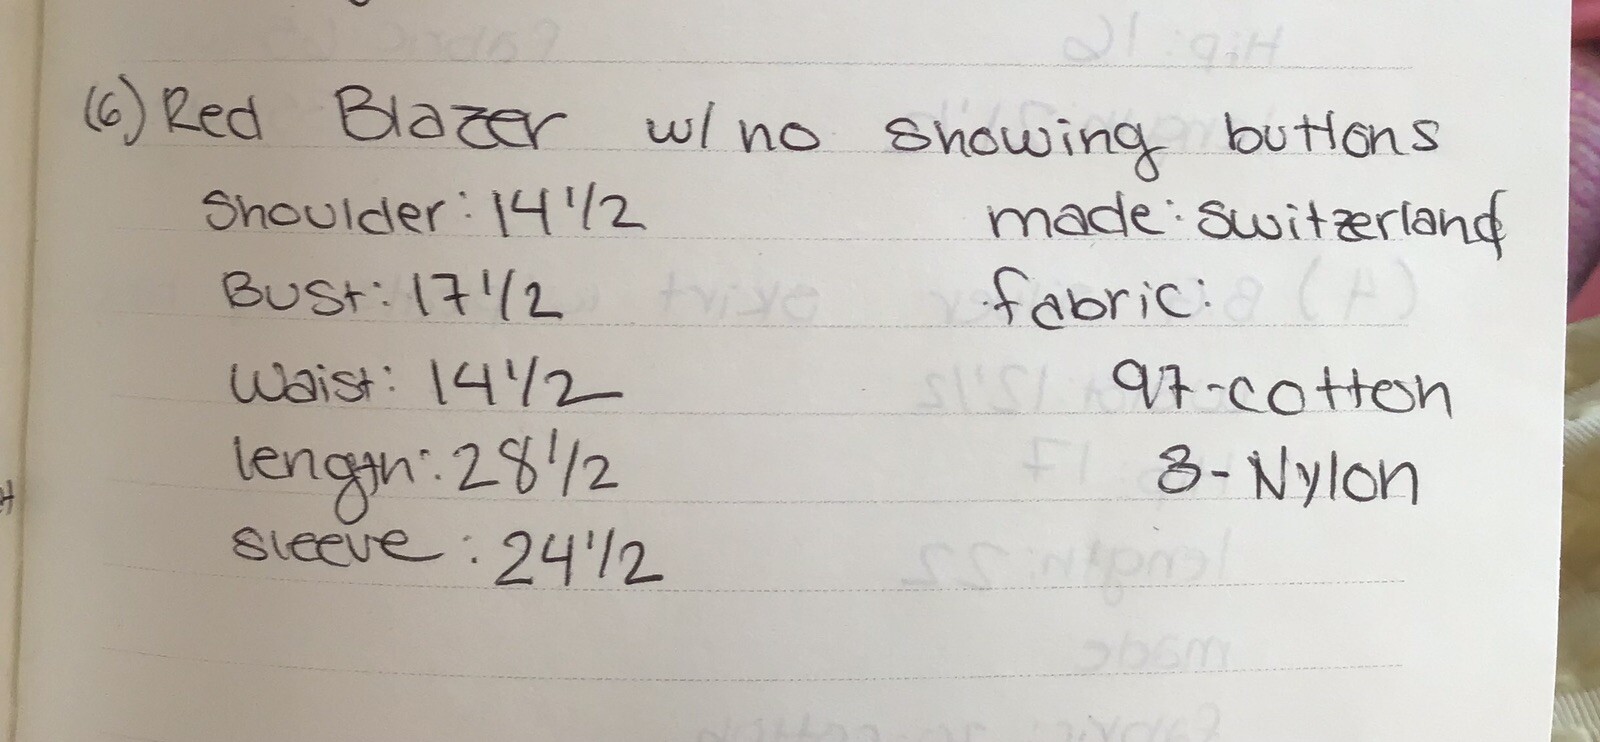 (6) Red Blazer w/ no showing buttons
Shoulder: 14 1/2
made: Switzerland
Bust: 17 1/2
fabric:
Waist: 14 1/2
97-cotton
length: 28 1/2
3-Nylon
sleeve: 24 1/2